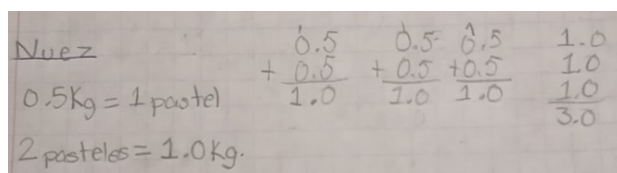 Nuez
0.5Kg = 1 pastel
2 pasteles = 1.0Kg.
0.5
+ 0.5
1.0
0.5
+ 0.5
1.0
0.5
+0.5
1.0
1.0
1.0
1.0
3.0